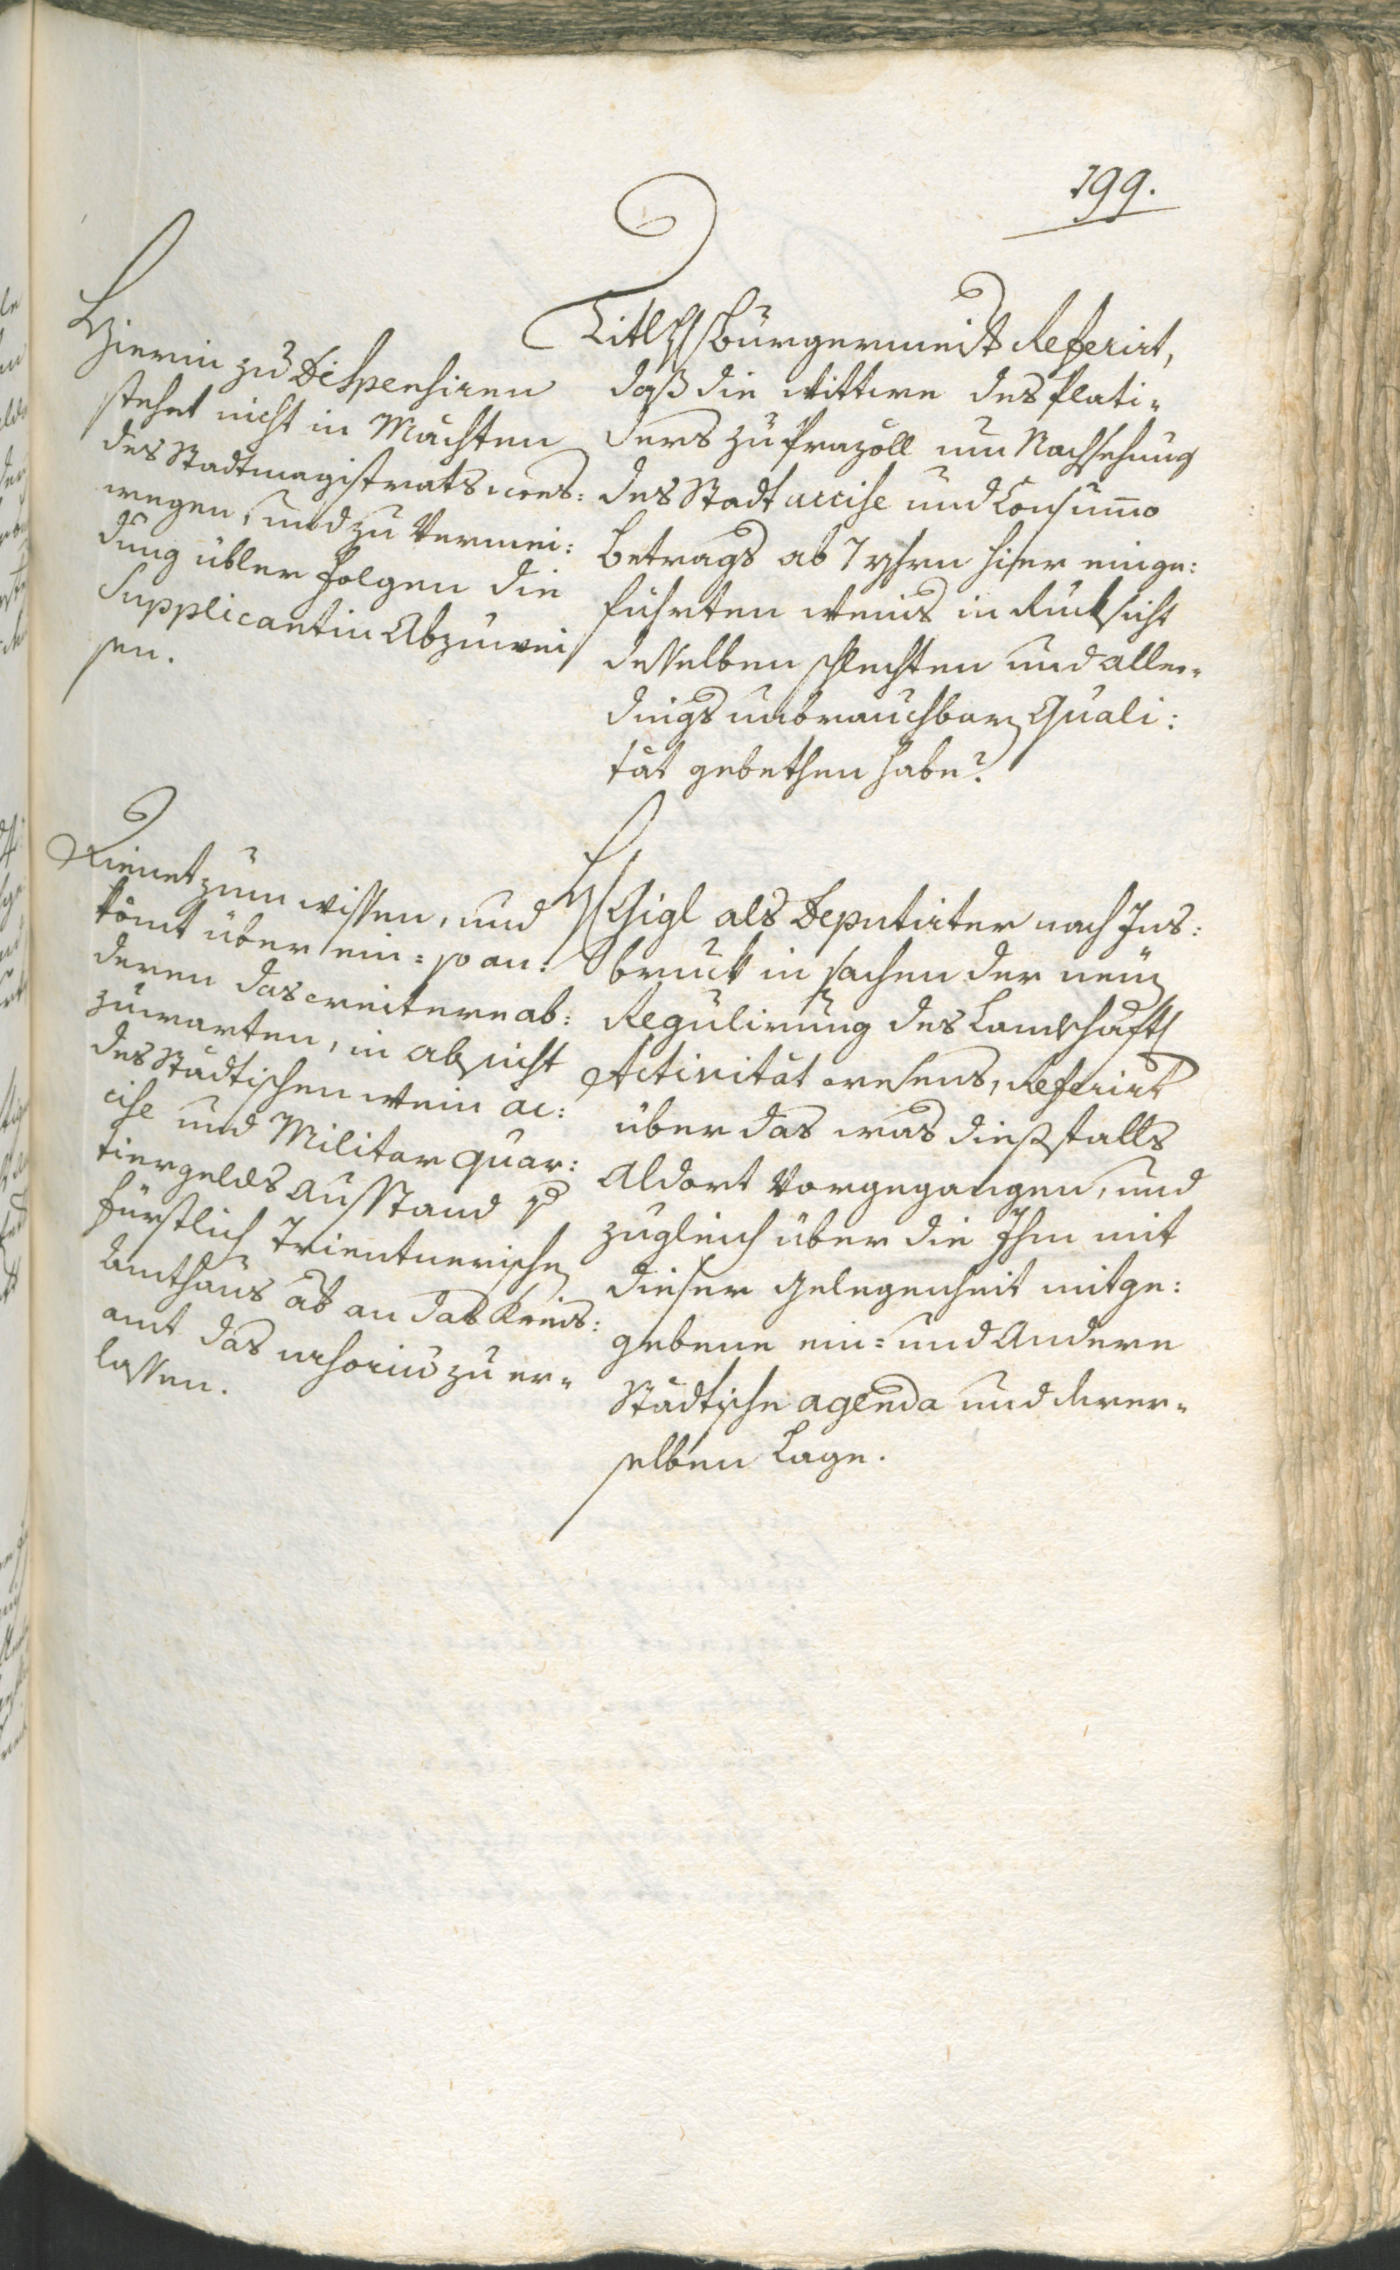 199.
Titl H: Bürgermeister Referirt,
daß die Wittwe des Plati-
ders zu Prazöll um Nachsehung
des Stadt accise und Consummo
betrags ab 7 yhrn hiher einge:
führten Weins in Rucksicht
desselben schlechten und aller-
dings unbrauchbaren Quali:
tät gebethen habe?
Hierin zu Dispensiren
stehet nicht in Mächten
des Stadtmagistrats, wes:
wegen, und zu Vermei:
dung übler Folgen die
Supplicantin Abzuwei
sen.
H: Gigl als Deputirter nach Ins:
bruck in sachen der neuen
Regulirung des Landschaftl:
Activität wesens, Referirt
über das was dießfalls
aldort Vorgegangen, und
zugleich über die Ihm mit
dieser Gelegenheit mitge:
gebene ein- und Andere
Städtische agenda und derer-
selben Lage.
Dienet zum wissen, und
kömt über ein- so an:
deren das weitere ab:
zuwarten, in absicht
des Städtischen Wein ac:
cise und Militar Quar:
tiergelds Ausstand des
fürstlich Trientnerischen
Amthaus ab an das Kreis:
amt das ursorium zu er-
lassen.